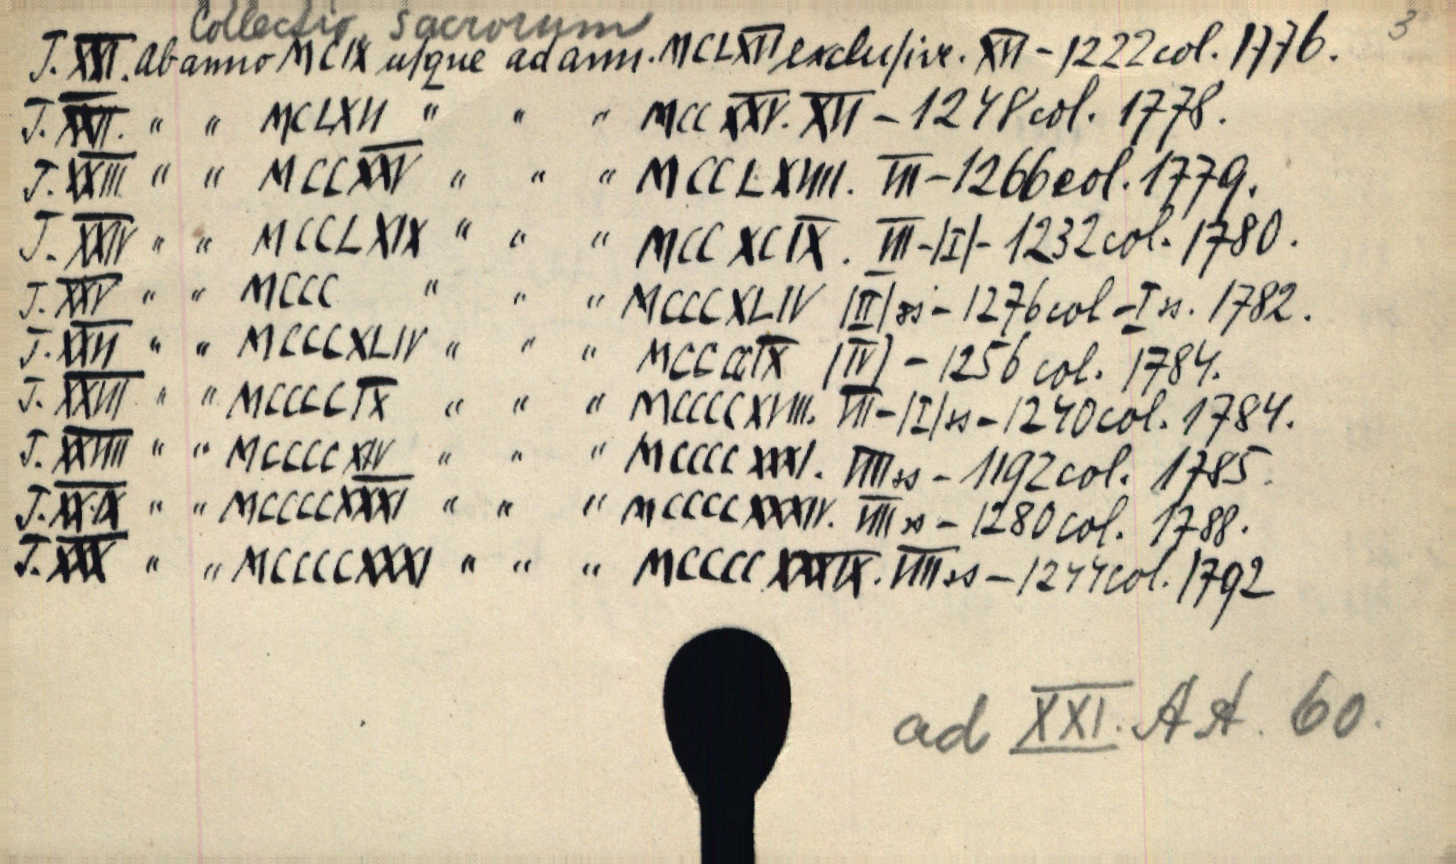 Collectio sacrorum 3
T. XXI. Ab anno MCIX usque ad ann. MCLXVI exclusive. XII - 1222 col. 1776.
T. XXII. " " MCLXVI " " " MCCXXV. XVI - 1248 col. 1778.
T. XXIII " " MCCXXV " " " MCCLXVIII. VII - 1266 col. 1779.
T. XXIV " " MCCLXIX " " " MCCXCIX. VII-|I|- 1232 col. 1780.
T. XXV " " MCCC " " " MCCCXLIV |II| ss - 1276 col - I ss. 1782.
T. XXVI " " MCCCXLIV " " " MCCCCIX |IV| - 1256 col. 1784.
T. XXVII " " MCCCCIX " " " MCCCCXVIII. VII-|I| ss - 1240 col. 1784.
T. XXVIII " " MCCCCXIV " " " MCCCCXXXI. VIII ss - 1192 col. 1785.
T. XXIX " " MCCCCXXXI " " " MCCCCXXXIV. VIII ss - 1280 col. 1788.
T. XXX " " MCCCCXXXI " " " MCCCCXXXIX. VIII ss - 1244 col. 1792
ad XXI. AA. 60.